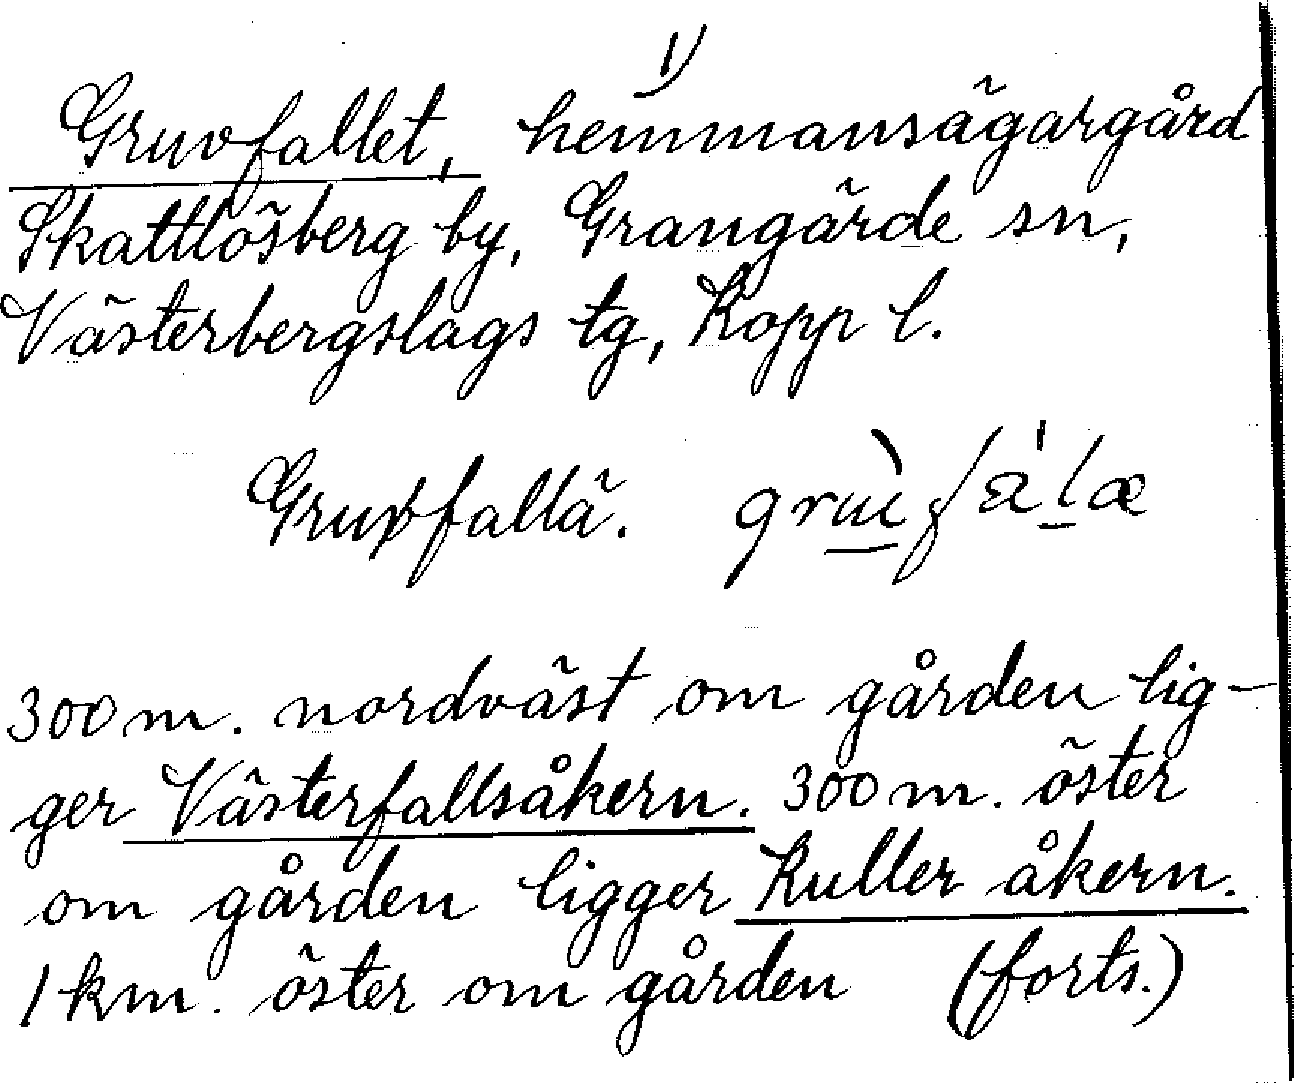 1)
Gruvfallet, hemmansägargård
Skattlösberg by, Grangärde sn,
Västerbergslags tg, Kopp l.
Gruvfallä.
300 m. nordväst om gården lig-
ger Västerfallsåkern. 300 m. öster
om gården ligger Kuller åkern.
1 km. öster om gården (forts.)